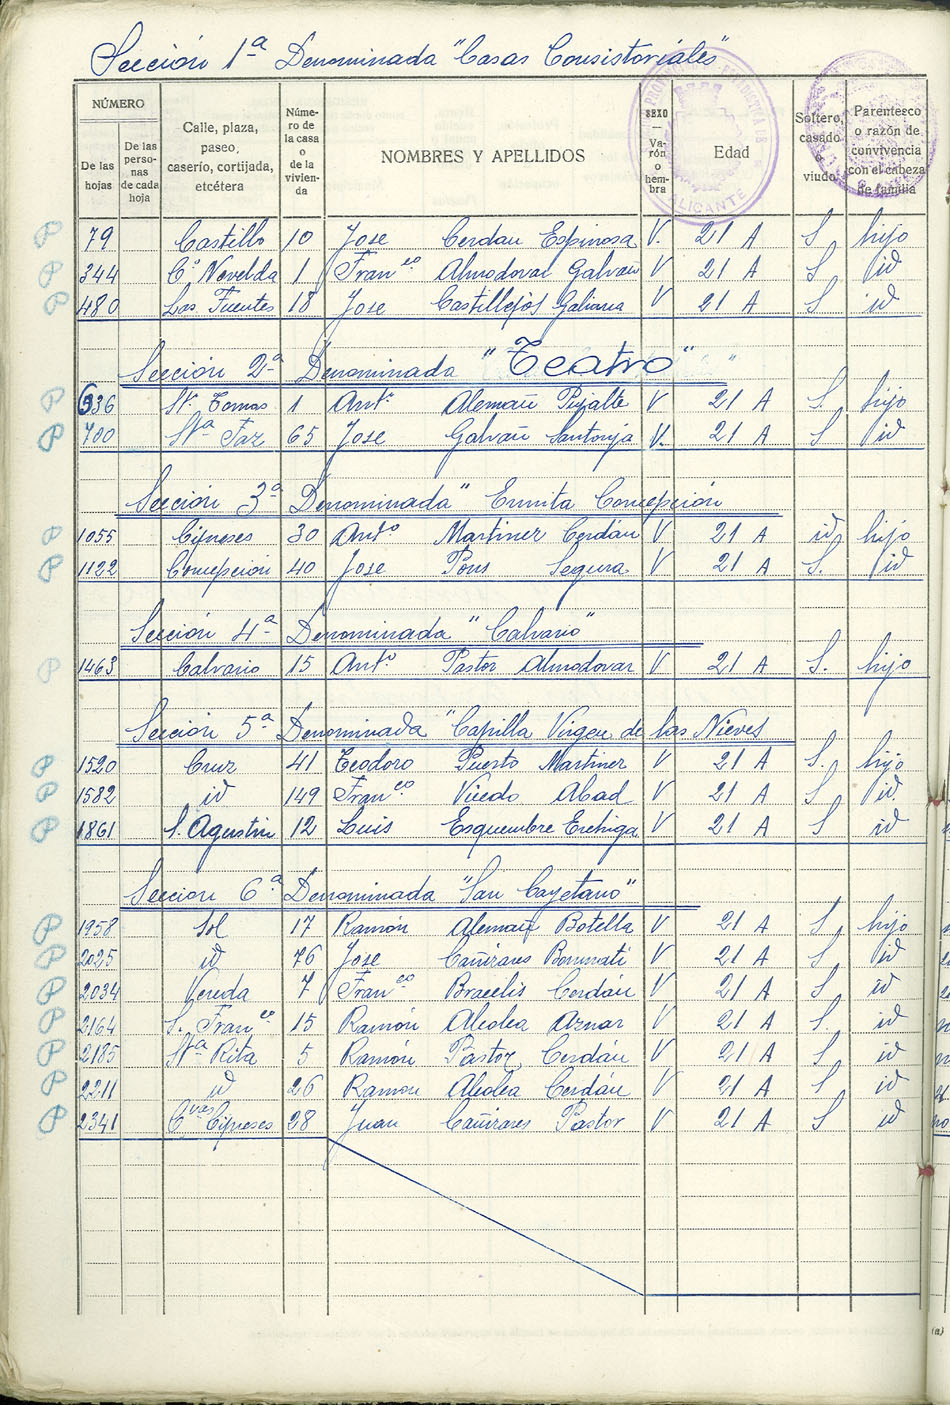 Sección 1ª Denominada "Casas Consistoriales"
NÚMERO
De las hojas
De las personas de cada hoja
Calle, plaza, paseo, caserío, cortijada, etcétera
Número de la casa o de la vivienda
NOMBRES Y APELLIDOS
SEXO — Varón o hembra
Edad
Soltero, casado o viudo
Parentesco o razón de convivencia con el cabeza de familia
ALICANTE
P 79 Castillo 10 Jose Cerdan Espinosa V. 21 A S hijo
P 344 Cº Novelda 1 Franco Almodovar Galvan V 21 A S id
P 480 Las Fuentes 18 Jose Castillejos Galiana V 21 A S id
Sección 2ª Denominada "Teatro"
P 936 Sto. Tomas 1 Antº Alemañ Pujalte V 21 A S. hijo
P 700 Sta Faz 65 Jose Galvañ Santonja V. 21 A S id
Sección 3ª Denominada "Ermita Concepción
P 1055 Cipreses 30 Antº Martinez Cerdán V 21 A id hijo
P 1122 Concepcion 40 Jose Pons Segura V 21 A S. id
Sección 4ª Denominada "Calvario"
P 1463 Calvario 15 Antº Pastor Almodovar V 21 A S. hijo
Sección 5ª Denominada "Capilla Virgen de las Nieves
P 1520 Cruz 41 Teodoro Puerto Martinez V 21 A S. hijo
P 1582 id 149 Franco Vicedo Abad V 21 A S id.
P 1861 S. Agustin 12 Luis Esquembre V 21 A S id
Sección 6ª Denominada "San Cayetano"
P 1958 Sol 17 Ramón Alemañ Botella V 21 A S hijo
P 2025 id 76 Jose Cañizares Bonmatí V 21 A S id
P 2034 Vereda 7 Franco Bracelis Cerdán V 21 A S id
P 2164 S. Franco 15 Ramón Alcolea Aznar V 21 A S. id
P 2185 Sta Rita 5 Ramón Pastor Cerdán V 21 A S id
P 2211 id 26 Ramon Alcolea Cerdán V 21 A S id
P 2341 Cipreses 28 Juan Cañizares Pastor V 21 A S id